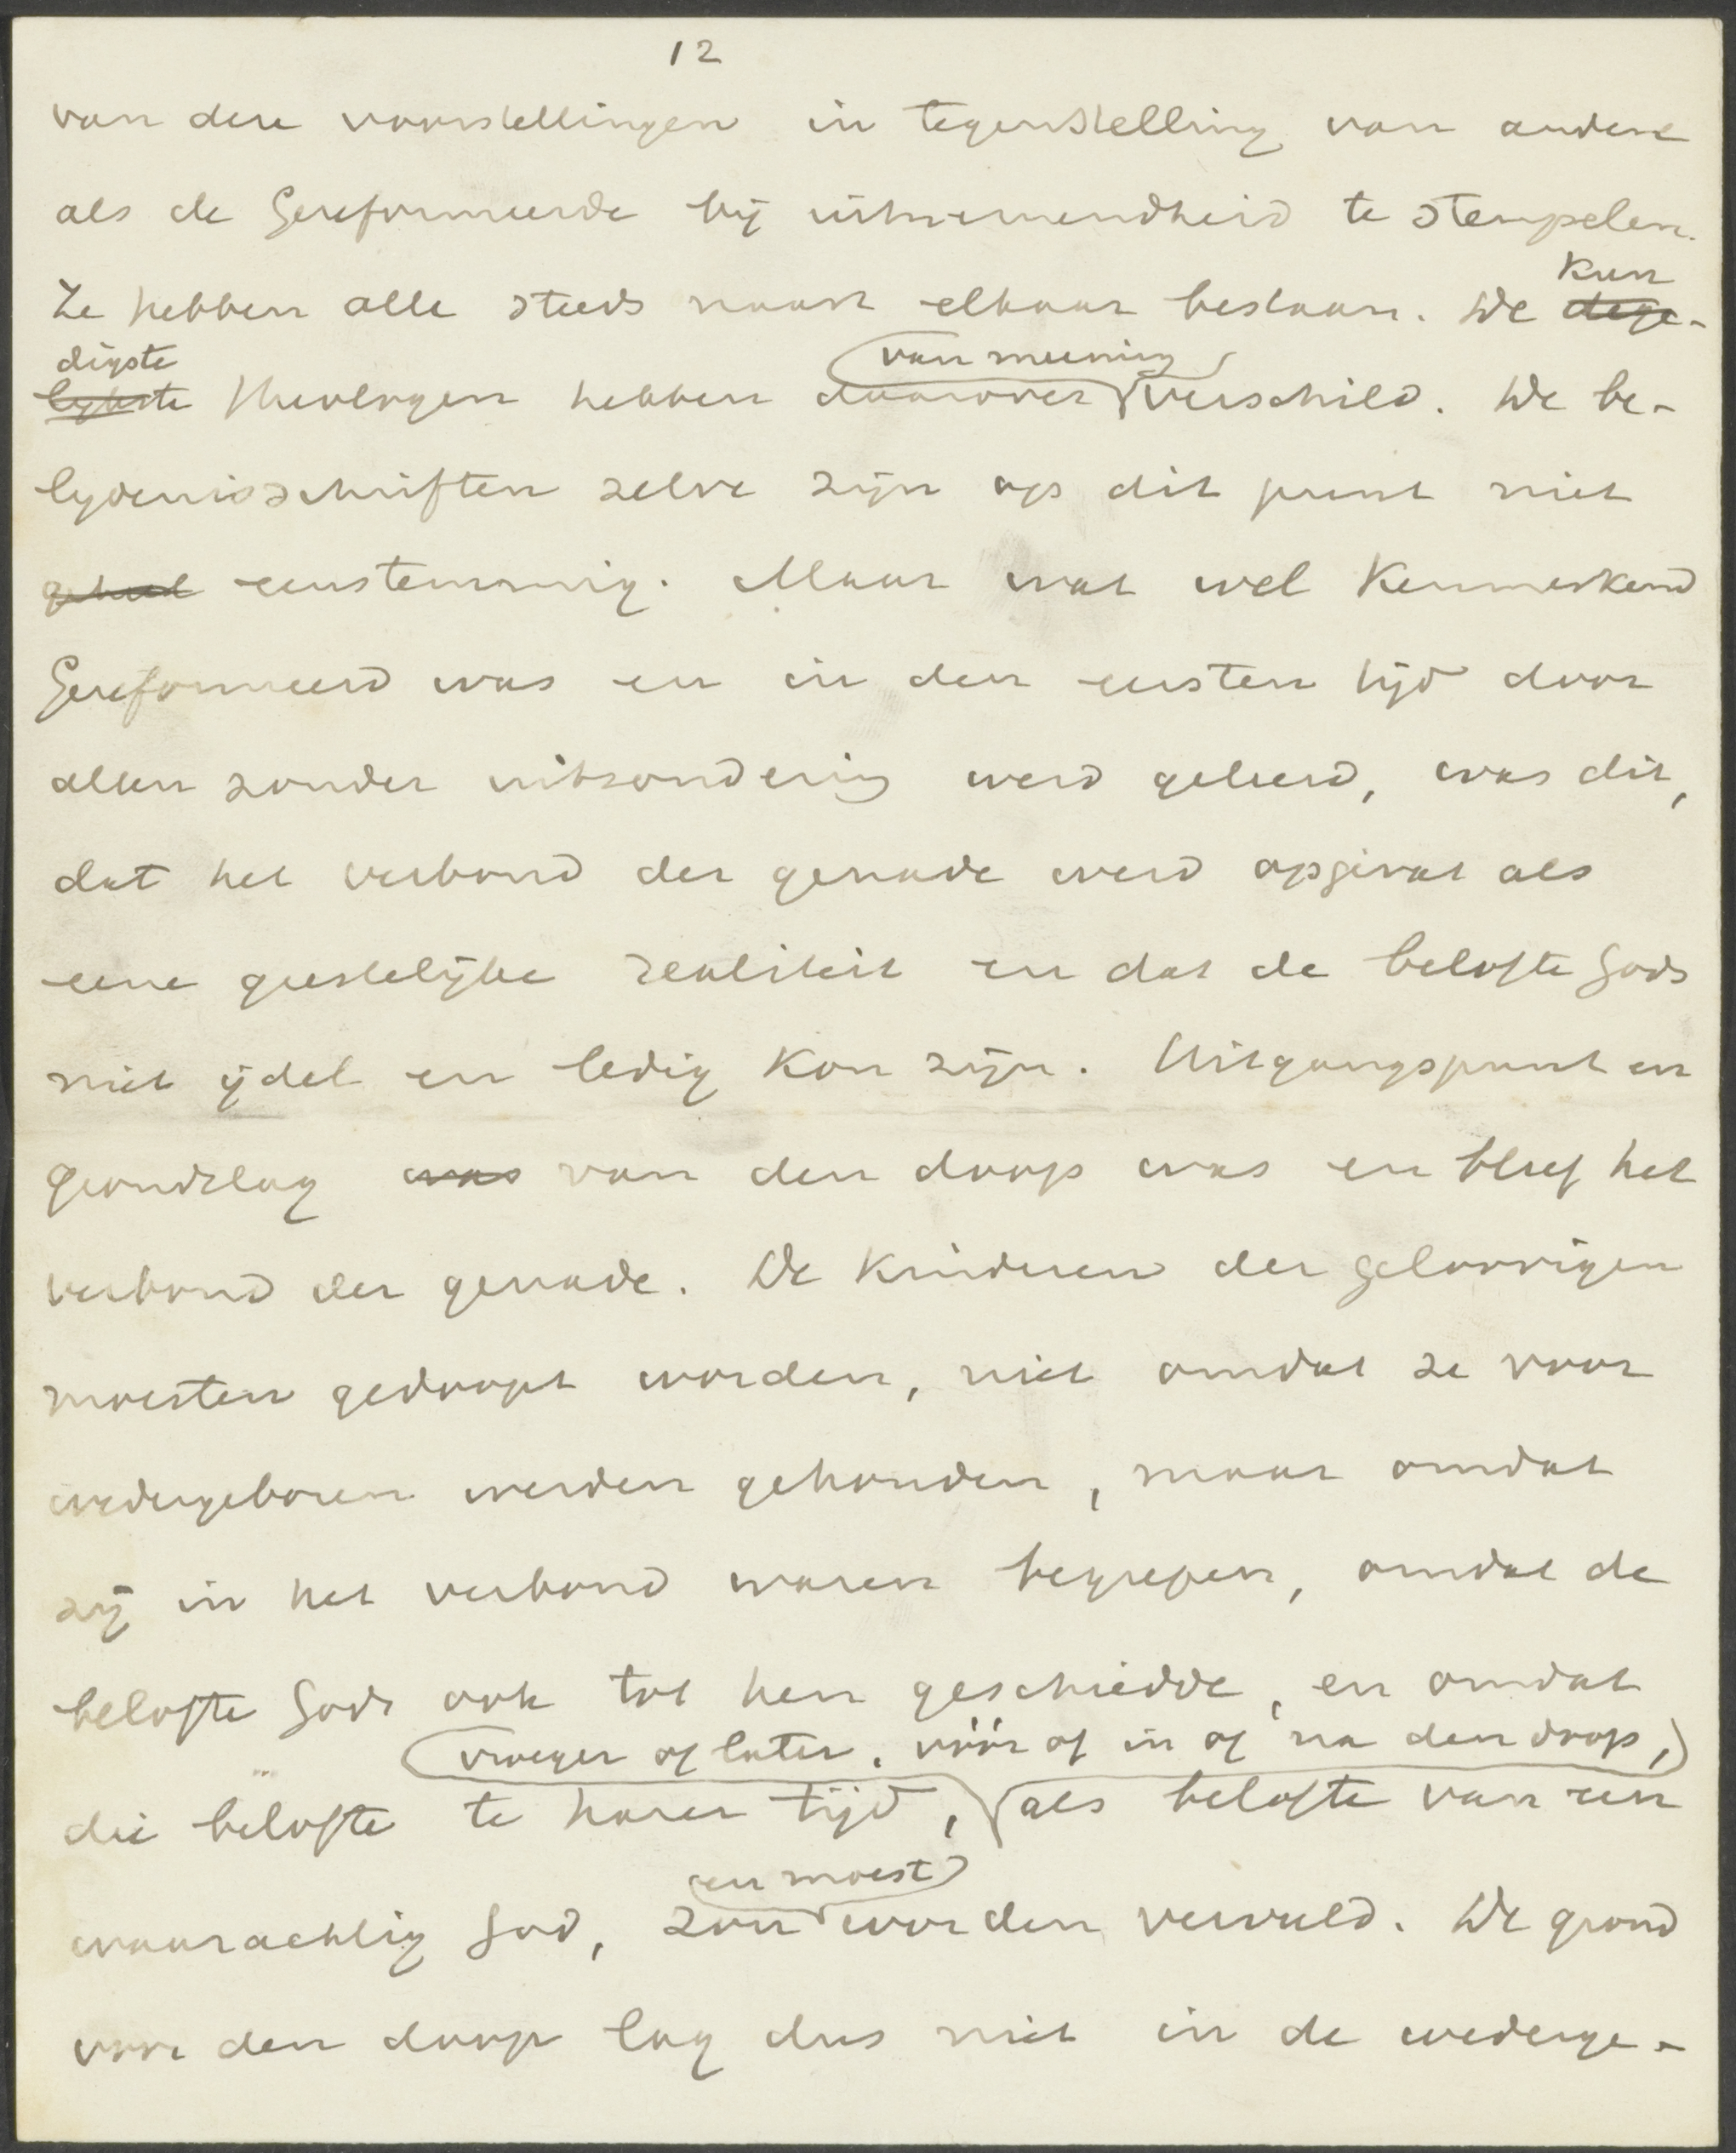 12
van deze voorstellingen in tegenstelling van andere
als de Gereformeerde bij uitnemendheid te stempelen.
Kun
Ze hebben alle steeds naast elkaar bestaan. De dege-
digste van meening
lijkste theologen hebben daarover verschild. De be-
lijdenisschriften zelve zijn op dit punt niet
geheel eenstemmig. Maar wat wel Kenmerkend
Gereformeerd was en in den eersten tijd door
allen zonder uitzondering werd geleerd, was dit,
dat het verbond der genade werd opgevat als
eene geestelijke realiteit en dat de belofte Gods
niet ijdel en ledig Kon zijn. Uitgangspunt en
grondslag was van den doop was en bleef het
verbond der genade. De Kinderen der geloovigen
moesten gedoopt worden, niet omdat ze voor
wedergeboren werden gehouden, maar omdat
zij in het verbond waren begrepen, omdat de
belofte Gods ook tot hen geschiedde, en omdat
vroeger of later, vóór of in of na den doop,
die belofte te harer tijd, als belofte van een
en moest
waarachtig God, zou worden vervuld. De grond
voor den doop lag dus niet in de wederge-